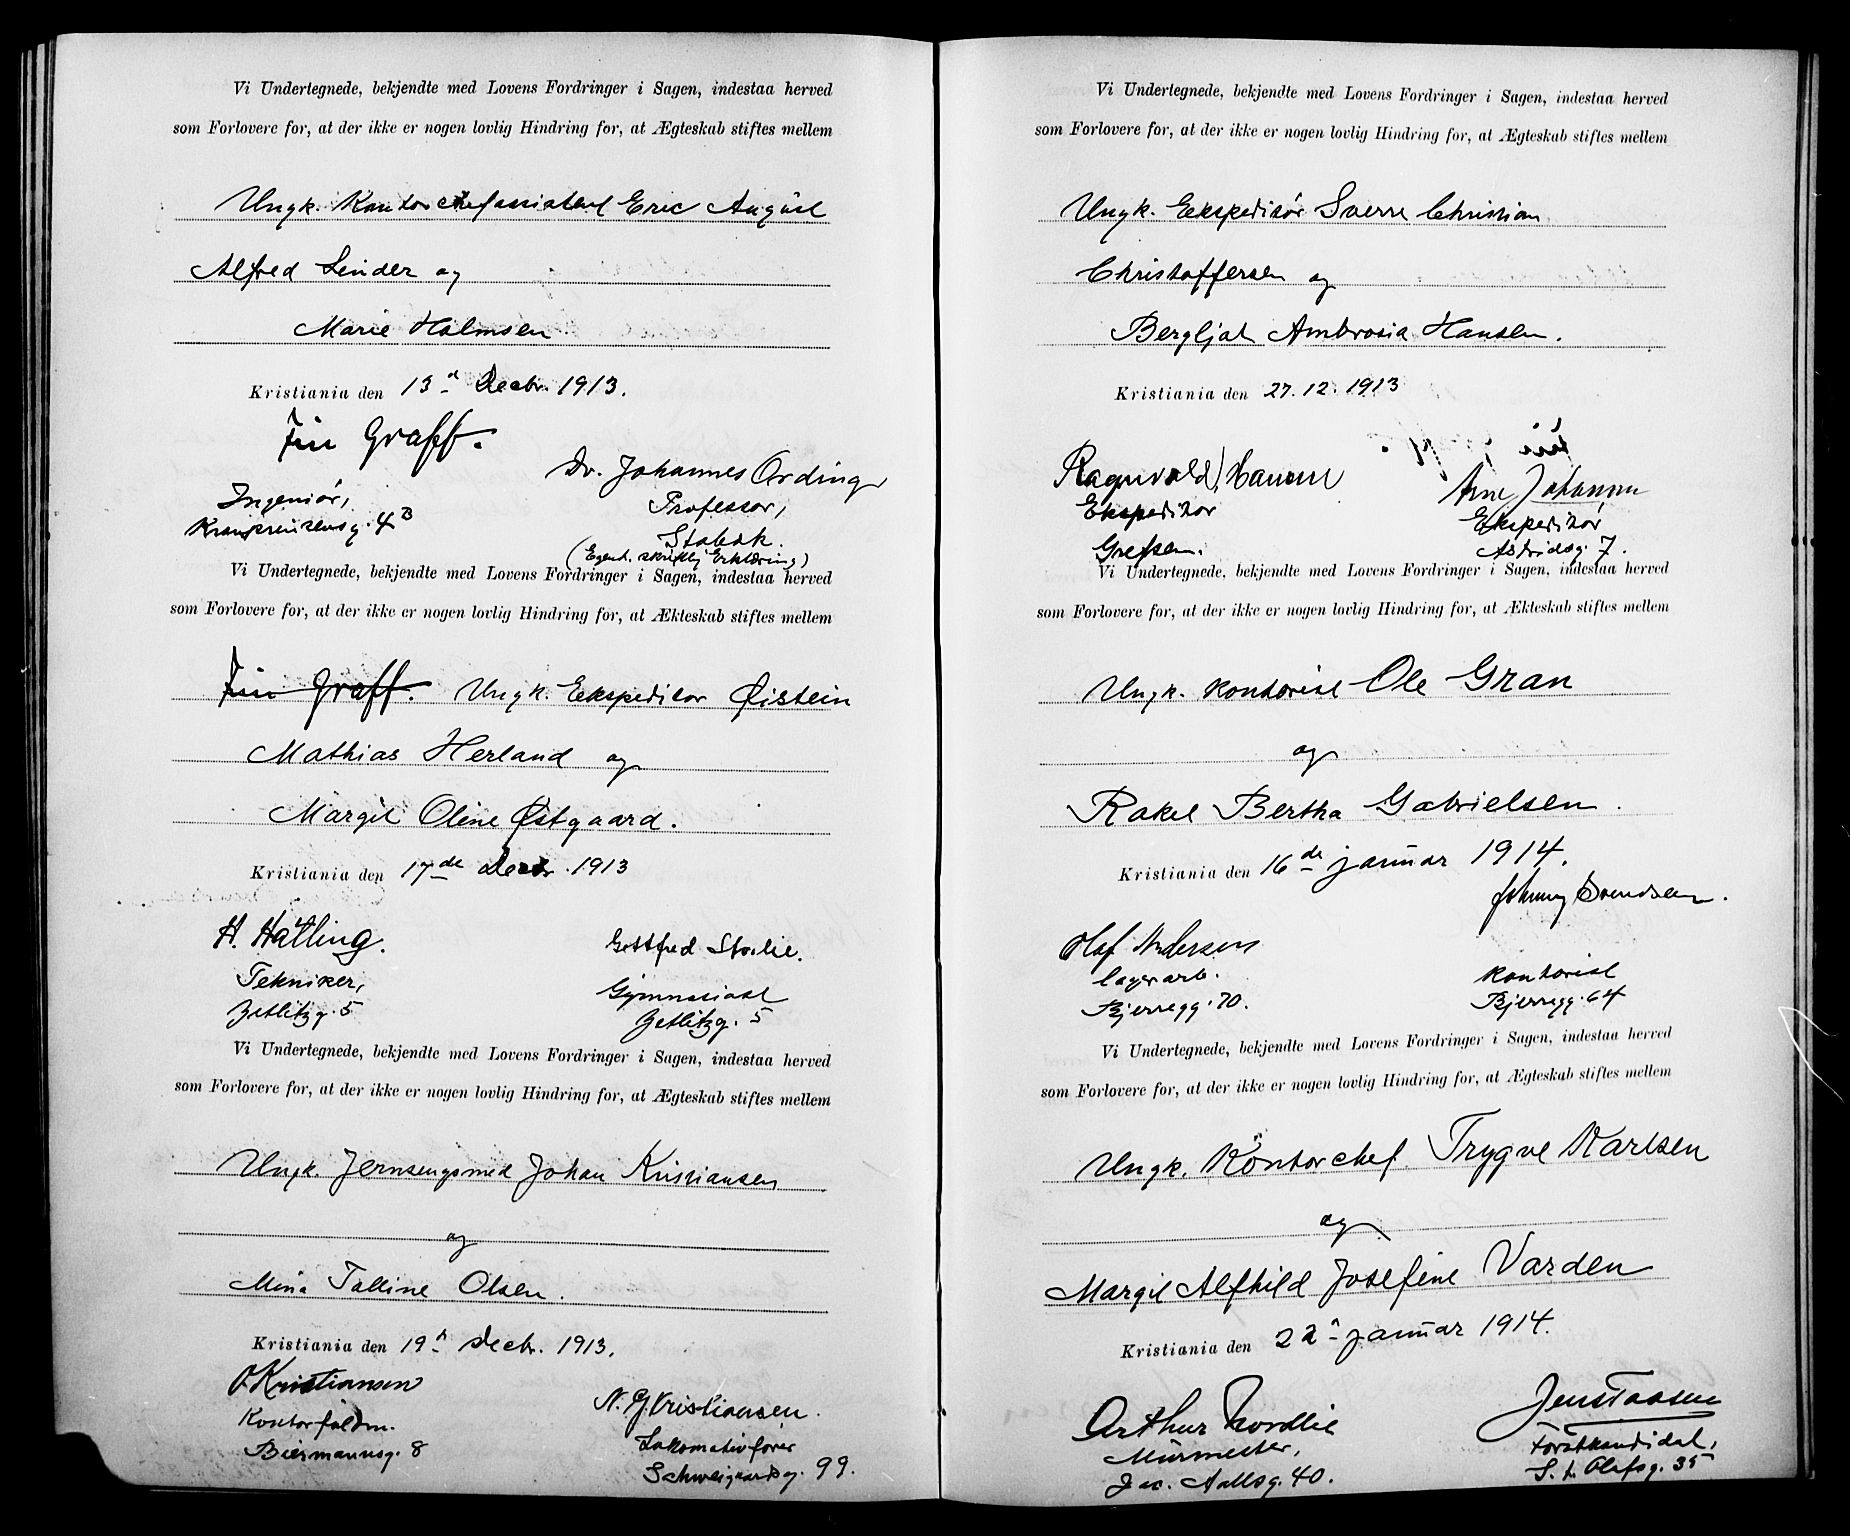 Vi Undertegnede, bekjendte med Lovens Fordringer i Sagen, indestaa herved
som Forlovere for, at der ikke er nogen lovlig Hindring for, at Ægteskab stiftes mellem
Ungk. Kontorchefassistent Eric August
Alfred Linder og
Marie Holmsen
Kristiania den 13d Decbr. 1913.
Finn Graff.
Dr. Johannes Ording
Ingeniør,
Professor,
Kronprinsensg. 4B
Stabæk.
(Egenh. skriftlig Erklæring)
Vi Undertegnede, bekjendte med Lovens Fordringer i Sagen, indestaa herved
som Forlovere for, at der ikke er nogen lovlig Hindring for, at Ækteskab stiftes mellem
Finn Graff. Ungk. Ekspeditør Øistein
Mathias Herland og
Margit Oline Østgaard.
Kristiania den 17de Decbr. 1913
H. Hatling.
Gottfred
Tekniker,
Gymnasiast
Zetlitzg. 5
Zetlitzg. 5
Vi Undertegnede, bekjendte med Lovens Fordringer i Sagen, indestaa herved
som Forlovere for, at der ikke er nogen lovlig Hindring for, at Ægteskab stiftes mellem
Ungk. Jernsengsmed Johan Kristiansen
og
Mina Talline Olsen.
Kristiania den 19d Decbr. 1913.
O Kristiansen
N. G. Kristiansen.
Kontorfuldm.
Lokomotivfører
Biermannsg. 8
Schweigaardsg. 99.
Vi Undertegnede, bekjendte med Lovens Fordringer i Sagen, indestaa herved
som Forlovere for, at der ikke er nogen lovlig Hindring for, at Ægteskab stiftes mellem
Ungk. Ekspeditør Sverre Christian
Christoffersen og
Bergljot Ambrosia Hansen.
Kristiania den 27.12.1913
Ragnvald Hansen
Arne Johansen
Ekspeditør
Ekspeditør
Grefsen.
Astridsg. 7.
Vi Undertegnede, bekjendte med Lovens Fordringer i Sagen, indestaa herved
som Forlovere for, at der ikke er nogen lovlig Hindring for, at Ækteskab stiftes mellem
Ungk. Kontorist Ole Gran
og
Rakel Bertha Gabrielsen.
Kristiania den 16de januar 1914.
Johnny Svendsen.
Olaf Andersen
lagerarb.
Kontorist
Bjerregg. 70.
Bjerregg. 64
Vi Undertegnede, bekjendte med Lovens Fordringer i Sagen, indestaa herved
som Forlovere for, at der ikke er nogen lovlig Hindring for, at Ægteskab stiftes mellem
Ungk. Kontorchef Trygve Karlsen
og
Margit Alfhild Josefine Varden
Kristiania den 22d januar 1914.
Arthur Nordlie
Jens Taasen
Murmester,
Forstkandidat,
Jac. Aallsg. 40.
St. Olafsg. 35